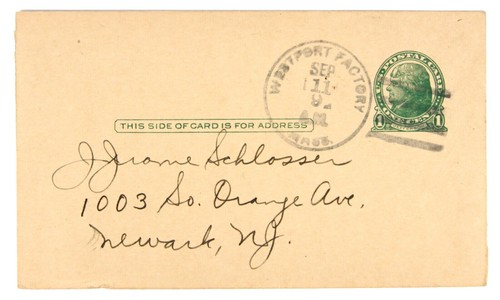 WESTPORT FACTORY
SEP
11
MASS.
U.S. POSTAL CARD
1 1
THIS SIDE OF CARD IS FOR ADDRESS
J. Jerome Schlosser
1003 So. Orange Ave.
Newark, NJ.